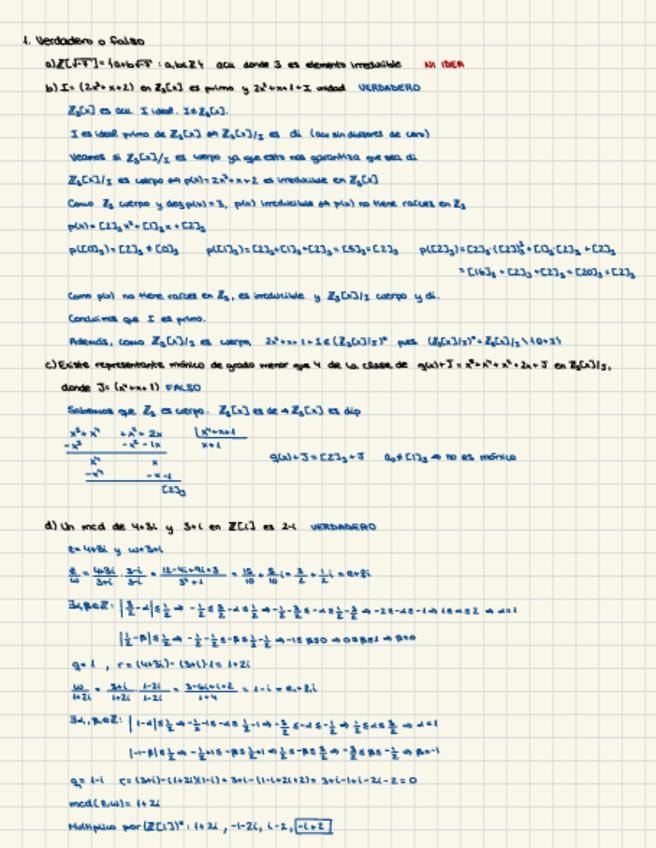 1. Verdadero o Falso
a) Z[√-7] = {a+b√-7 : a,b∈Z} acu donde 3 es elemento irreducible NI IDEA
b) I = (2x³+x+2) en Z₃[x] es primo y 2x²+x+1+I unidad VERDADERO
Z₃[x] es acu. I ideal. I≠Z₃[x].
I es ideal primo de Z₃[x] ⇔ Z₃[x]/I es di (acu sin divisores de cero)
Veamos si Z₃[x]/I es cuerpo ya que esto nos garantiza que sea di
Z₃[x]/I es cuerpo ⇔ p(x) = 2x³+x+2 es irreducible en Z₃[x]
Como Z₃ cuerpo y deg p(x) = 3, p(x) irreducible ⇔ p(x) no tiene raíces en Z₃
p(x) = [2]₃x³+[1]₃x+[2]₃
p([0]₃) = [2]₃ ≠ [0]₃ p([1]₃) = [2]₃+[1]₃+[2]₃ = [5]₃ = [2]₃ p([2]₃) = [2]₃·([2]₃)³+[1]₃·[2]₃+[2]₃
= [16]₃+[2]₃+[2]₃ = [20]₃ = [2]₃
Como p(x) no tiene raíces en Z₃, es irreducible y Z₃[x]/I cuerpo y di.
Concluimos que I es primo.
Además, como Z₃[x]/I es cuerpo, 2x²+x+1+I ∈ (Z₃[x]/I)* pues (Z₃[x]/I)* = Z₃[x]/I \ {0+I}
c) Existe representante mónico de grado menor que 4 de la clase de g(x)+J = x⁵+x⁴+x²+2x+J en Z₃[x]/J,
donde J = (x⁴+x+1) FALSO
Sabemos que Z₃ es cuerpo. Z₃[x] es de ⇒ Z₃[x] es dip
x⁵+x⁴ +x²+2x |x⁴+x+1
-x⁵ -x²-1x x+1
x⁴ x g(x)+J = [2]₃+J a₀≠[1]₃ ⇒ no es mónico
-x⁴ -x-1
[2]₃
d) Un mcd de 4+3i y 3+i en Z[i] es 2-i VERDADERO
z = 4+3i y w = 3+i
z/w = (4+3i)/(3+i) · (3-i)/(3-i) = (12-4i+9i+3)/(3²+1) = 15/10 + 5/10 i = 3/2 + 1/2 i = e+fi
∃α,β∈Z: |3/2-α| ≤ 1/2 ⇒ -1/2 ≤ 3/2-α ≤ 1/2 ⇒ -1/2-3/2 ≤ -α ≤ 1/2-3/2 ⇒ -2 ≤ -α ≤ -1 ⇒ 1 ≤ α ≤ 2 ⇒ α=1
|1/2-β| ≤ 1/2 ⇒ -1/2-1/2 ≤ -β ≤ 1/2-1/2 ⇒ -1 ≤ β ≤ 0 ⇒ 0 ≤ β ≤ 1 ⇒ β=0
q = 1 , r = (4+3i)-(3+i)·1 = 1+2i
w/(1+2i) = (3+i)/(1+2i) · (1-2i)/(1-2i) = (3-6i+i+2)/(1+4) = 1-i = e₁+f₁i
∃α₁,β₁∈Z: |1-α| ≤ 1/2 ⇒ -1/2-1 ≤ -α ≤ 1/2-1 ⇒ -3/2 ≤ -α ≤ -1/2 ⇒ 1/2 ≤ α ≤ 3/2 ⇒ α=1
|-1-β| ≤ 1/2 ⇒ -1/2+1 ≤ -β ≤ 1/2+1 ⇒ 1/2 ≤ -β ≤ 3/2 ⇒ -3/2 ≤ β ≤ -1/2 ⇒ β=-1
q₁ = 1-i r₁ = (3+i)-(1+2i)(1-i) = 3+i-(1-i+2i+2) = 3+i-1+i-2i-2 = 0
mcd(z,w) = 1+2i
Multiplico por (Z[i])*: 1+2i , -1-2i, i-2, -i+2